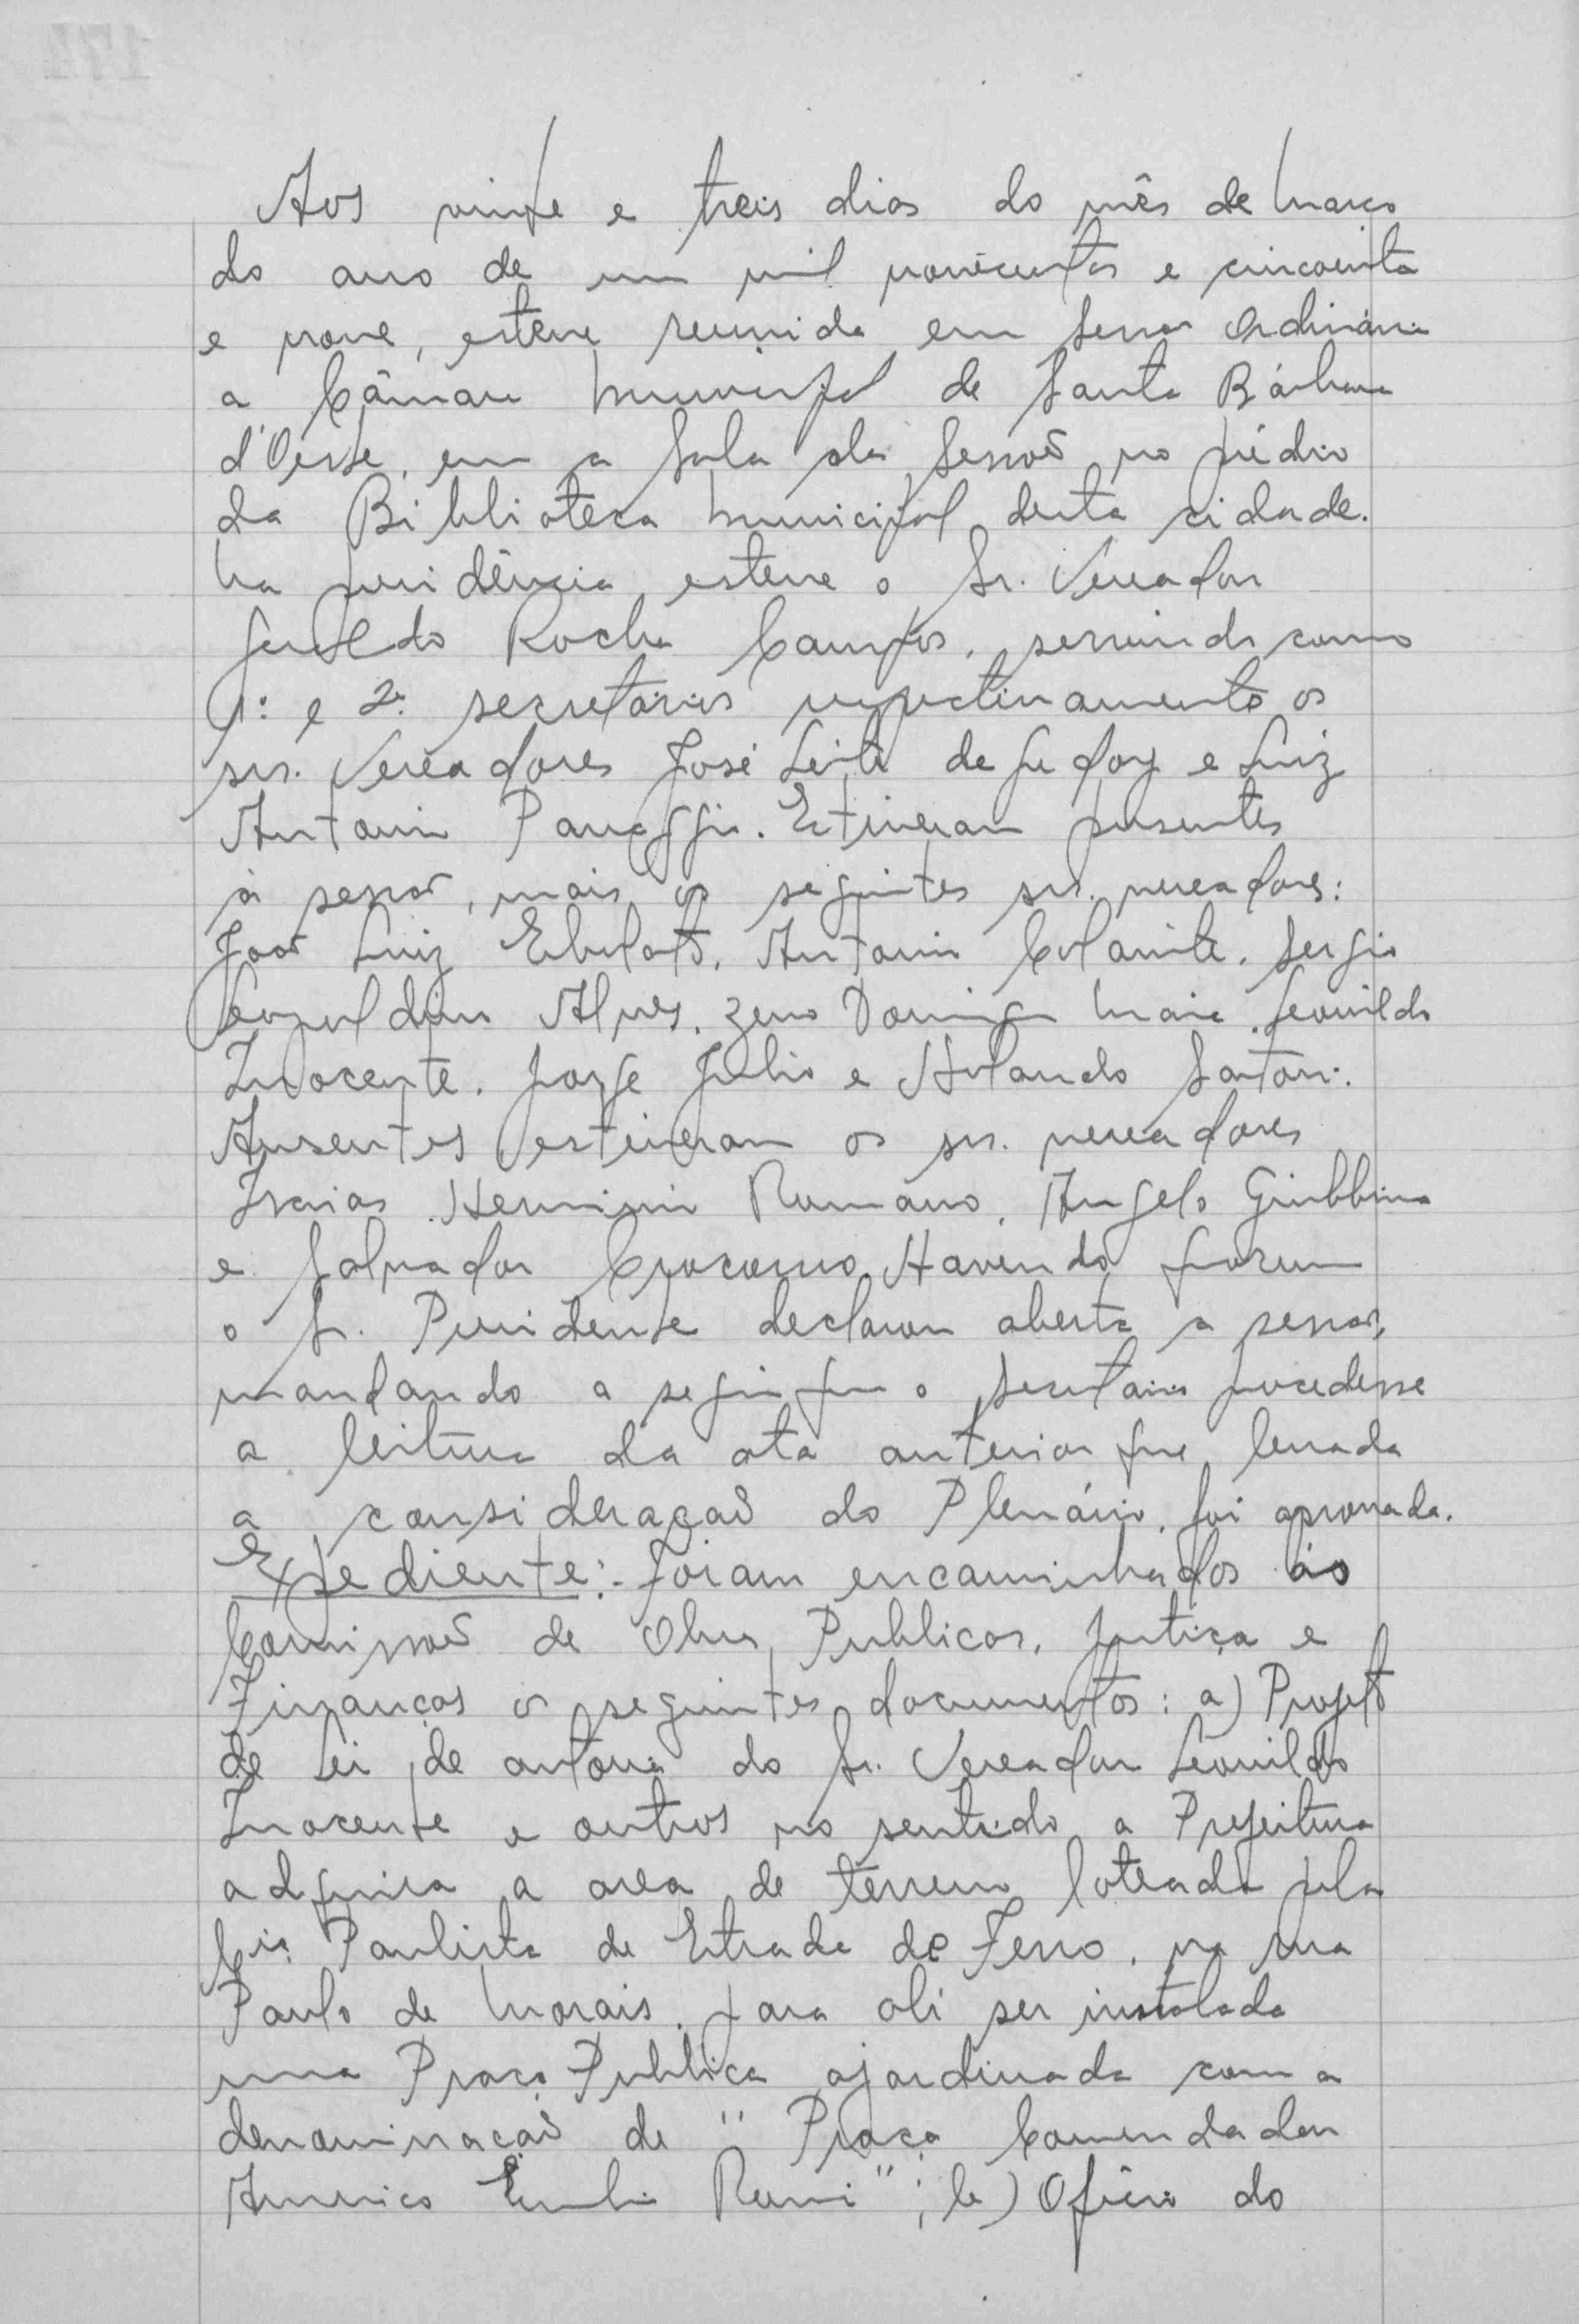 Aos vinte e treis dias do mês de Março
do ano de um mil novecentos e cincoenta
e nove, esteve reunida em sessão Ordinária
a Câmara Municipal de Santa Bárbara
d'Oeste, em a sala das sessões no prédio
da Biblioteca Municipal desta cidade.
Na presidência esteve o Sr. Vereador
Geraldo Rocha Campos, servindo como
1º e 2º secretários respectivamente os
srs. Vereadores José Leite de Godoy e Luiz
Antonio Panaggio. Estiveram presentes
à sessão, mais os seguintes srs. vereadores:
João Luiz Antonio Sergio
Leopoldino Alves, Zeno Domingos Maia, Leonildo
Inocente, Jorge Julio e Orlando Satori.
Ausentes estiveram os srs. vereadores
Isaias Herminio Romano, Angelo Giubbina
e Salvador Crocomo. Havendo
o Sr. Presidente declarou aberta a sessão,
mandando a seguir que o secretário procedesse
a leitura da ata anterior que levada
a consideração do Plenário, foi aprovada.
Expediente:- Foram encaminhados ás
Comissões de Obras Publicas, Justiça e
Finanças os seguintes documentos: a) Projeto
de Lei de autoria do Sr. Vereador Leonildo
Inocente e outros no sentido a Prefeitura
adquira a area de terreno loteada pela
Cia. Paulista de Estrada de Ferro, na rua
Paulo de Morais, para ali ser instalada
uma Praça Publica ajardinada com a
denominação de "Praça Comendador
Americo Emilio Romi"; b) Oficio do